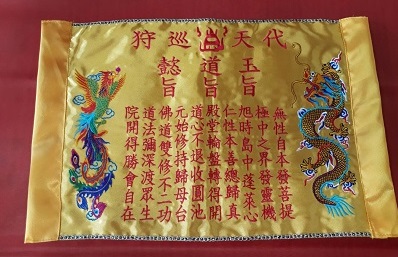 代天巡狩
玉旨
道旨
懿旨
無性自本發菩提
極中之界發靈機
旭時島中蓬萊心
仁性本善總歸真
殿堂輪盤轉得開
道心不退收圓池
元始修持歸母台
佛道雙修不二功
道法彌深渡眾生
院開得勝會自在